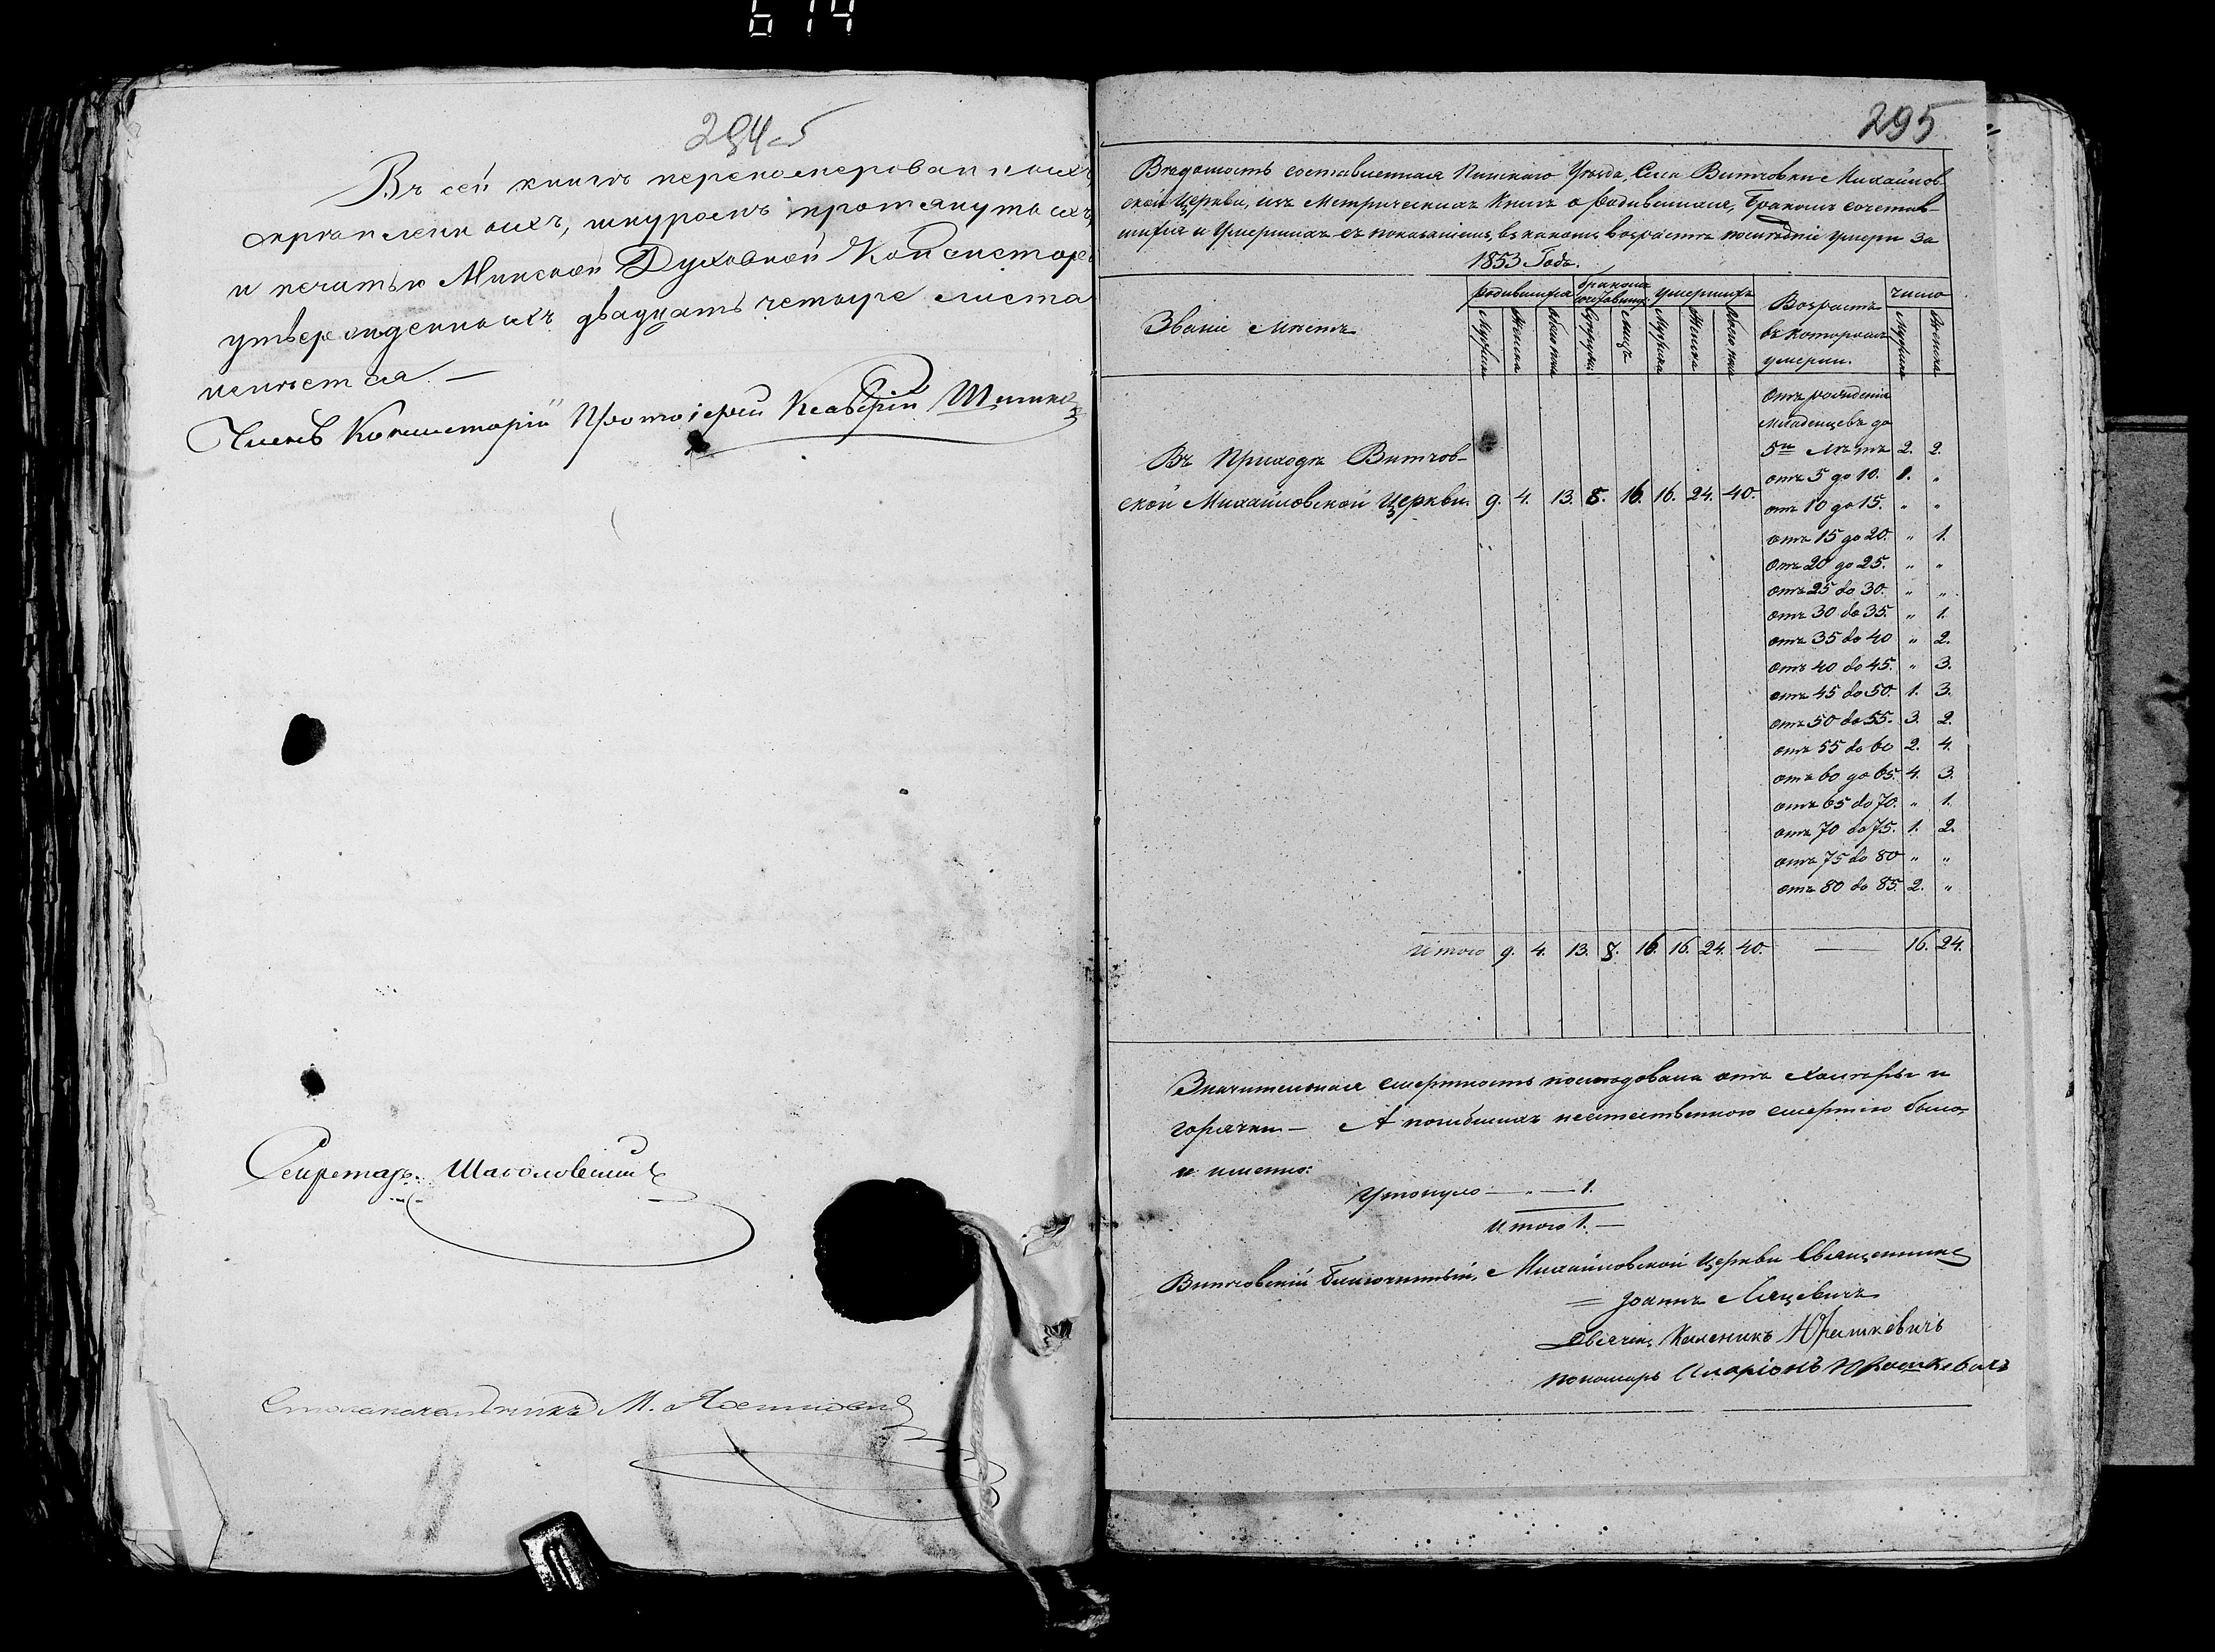 614
294об
Въ сей книгѣ перенумерованныхъ,
скрѣпленныхъ, шнуромъ протянутыхъ,
и печатью Минской Духовной Консисторіи
утвержденныхъ двадцать четыре листа
имѣется. —
Членъ Консисторіи Протоіерей
Секретарь
Столоначальникъ М.
295
Вѣдомость составленная Пинскаго Уѣзда, Села Витчовки Михайлов-
ской Церкви, изъ Метрическихъ Книгъ о Родившихся, Бракомъ сочетав-
шихся и Умершихъ съ показаніемъ, въ какомъ возрастѣ послѣдніе умерли за
1853 Годъ.
Званіе Мѣстъ
Родившихся
Бракомъ сочетавших.
Умершихъ
Возрастъ въ которомъ умерли.
Число
Мужска Женска Обоего пола Мужска Женска Обоего пола Мужска Женска
Отъ рожденія
Младенцевъ до
5ти Лѣтъ 2. 2.
отъ 5 до 10. 1. „
отъ 10 до 15. „ „
отъ 15 до 20. „ 1.
отъ 20 до 25. „ „
отъ 25 до 30. „ „
отъ 30 до 35. „ 1.
отъ 35 до 40 „ 2.
отъ 40 до 45. „ 3.
отъ 45 до 50. 1. 3.
отъ 50 до 55. 3. 2.
отъ 55 до 60 2. 4.
отъ 60 до 65. 4. 3.
отъ 65 до 70. „ 1.
отъ 70 до 75. 1. 2.
отъ 75 до 80 „ „
отъ 80 до 85 2. „
Въ Приходѣ Витчов-
ской Михайловской Церкви. 9. 4. 13. 8. 16. 16. 24. 40.
Итого 9. 4. 13. 8. 16. 16. 24. 40. — 16. 24.
Значительная смертность послѣдовала отъ холеры и
горячки — А погибшихъ неестественною смертію было
и именно:
Утонуло — „ — 1.
Итого 1. —
Витчовскій Благочинный, Михайловской Церкви Священникъ
Іоаннъ Ляцевичъ
Калѣникъ Юрашкевичъ
пономарь Иларіонъ Юрашкевичъ